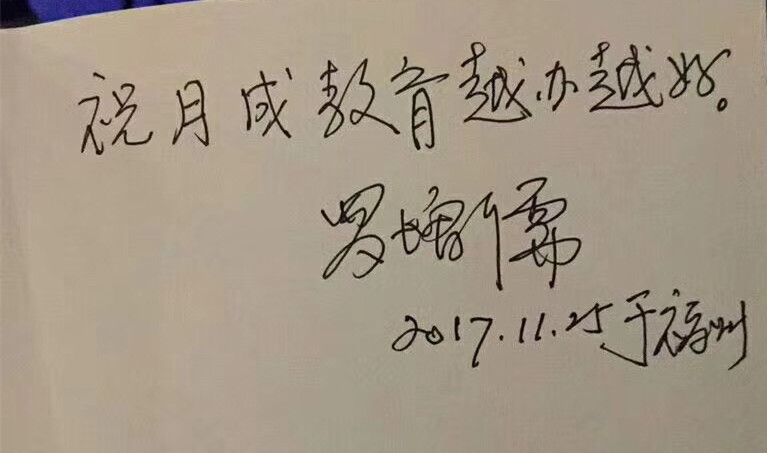 祝月成教育越办越好。
罗增儒
2017.11.25于福州